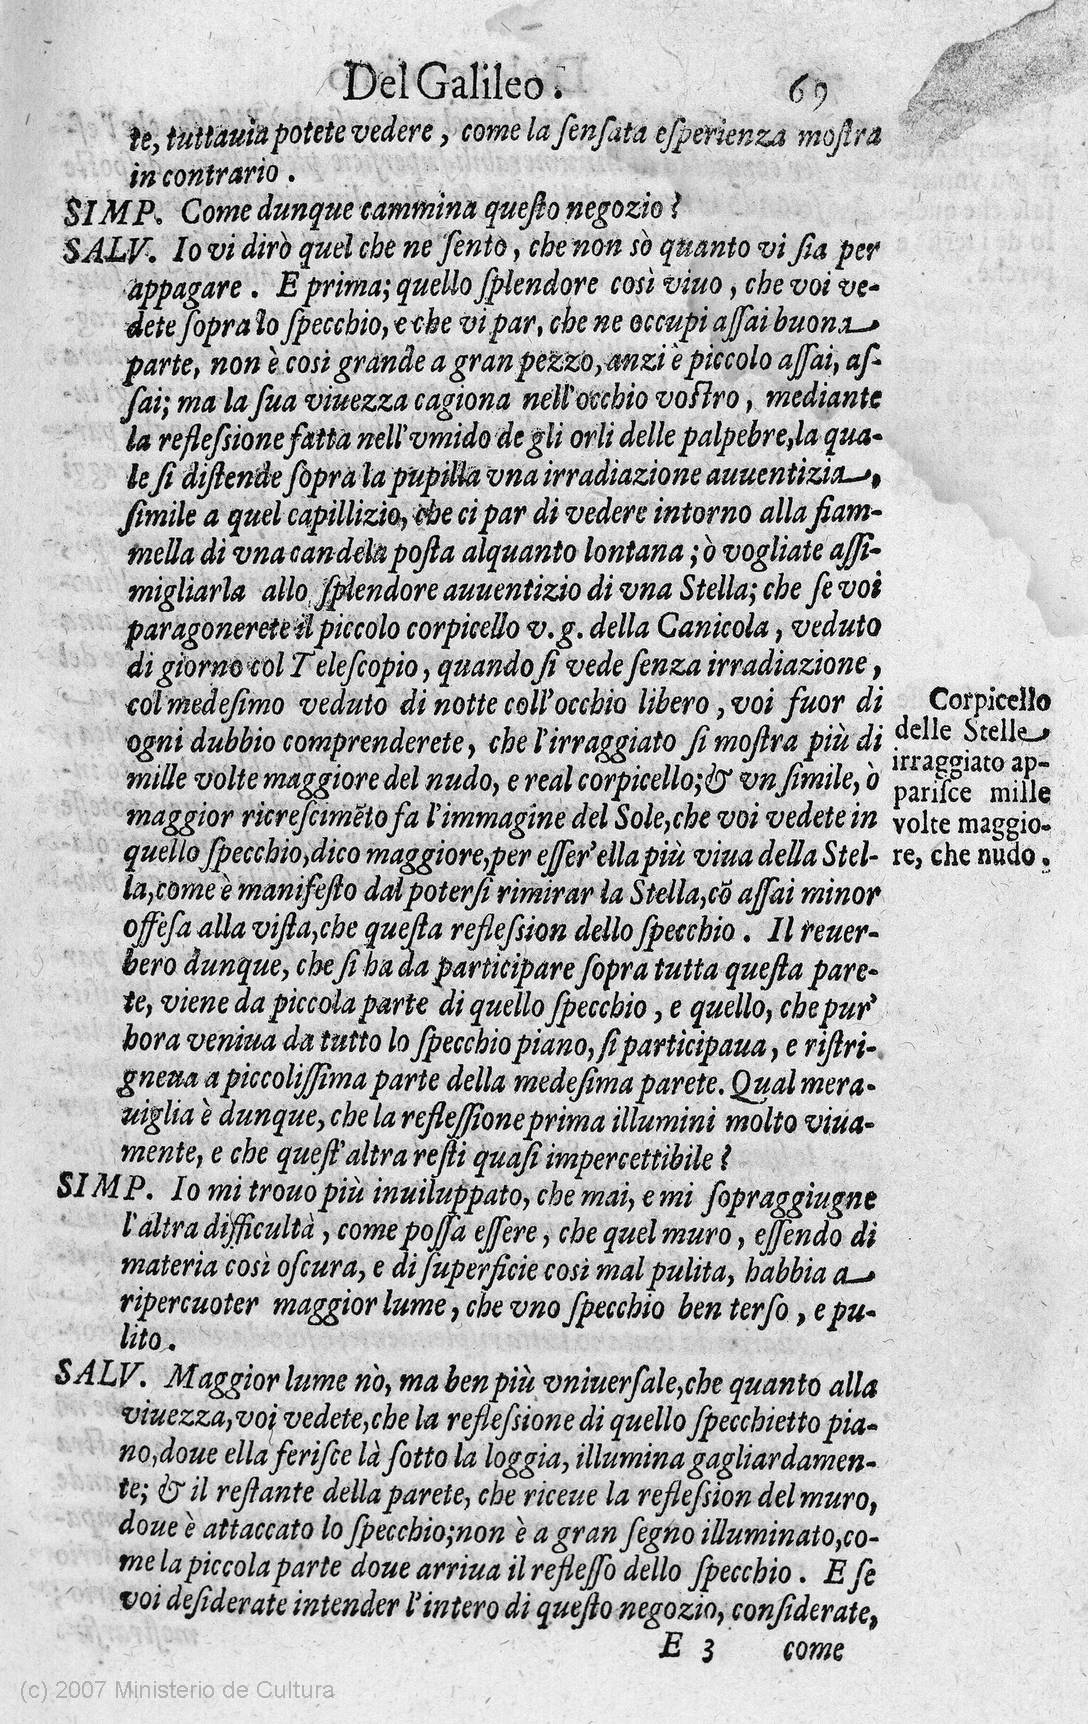 Del Galileo. 69
te, tuttauia potete vedere, come la ſenſata eſperienza moſtra
in contrario.
SIMP. Come dunque cammina queſto negozio?
SALV. Io vi dirò quel che ne ſento, che non sò quanto vi ſia per
appagare. E prima; quello ſplendore così viuo, che voi ve-
dete ſopra lo ſpecchio, e che vi par, che ne occupi aſſai buona
parte, non è cosi grande a gran pezzo, anzi è piccolo aſſai, aſ-
ſai; ma la ſua viuezza cagiona nell'occhio voſtro, mediante
la refleſsione fatta nell'vmido de gli orli delle palpebre, la qua-
le ſi diſtende ſopra la pupilla vna irradiazione auuentizia,
ſimile a quel capillizio, che ci par di vedere intorno alla fiam-
mella di vna candela poſta alquanto lontana; ò vogliate aſſi-
migliarla allo ſplendore auuentizio di vna Stella; che ſe voi
paragonerete il piccolo corpicello v.g. della Canicola, veduto
di giorno col Teleſcopio, quando ſi vede ſenza irradiazione,
col medeſimo veduto di notte coll'occhio libero, voi fuor di
ogni dubbio comprenderete, che l'irraggiato ſi moſtra più di
mille volte maggiore del nudo, e real corpicello; & vn ſimile, ò
maggior ricreſcimẽto fa l'immagine del Sole, che voi vedete in
quello ſpecchio, dico maggiore, per eſſer'ella più viua della Stel-
la, come è manifeſto dal poterſi rimirar la Stella, cõ aſſai minor
offeſa alla viſta, che queſta refleſsion dello ſpecchio. Il reuer-
bero dunque, che ſi ha da participare ſopra tutta queſta pare-
te, viene da piccola parte di quello ſpecchio, e quello, che pur'
hora veniua da tutto lo ſpecchio piano, ſi participaua, e riſtri-
gneua a piccoliſſima parte della medeſima parete. Qual mera-
uiglia è dunque, che la refleſſione prima illumini molto viua-
mente, e che queſt'altra reſti quaſi impercettibile?
SIMP. Io mi trouo più inuiluppato, che mai, e mi ſopraggiugne
l'altra difficultà, come poſſa eſſere, che quel muro, eſſendo di
materia così oſcura, e di ſuperficie cosi mal pulita, habbia a
ripercuoter maggior lume, che vno ſpecchio ben terſo, e pu-
lito.
SALV. Maggior lume nò, ma ben più vniuerſale, che quanto alla
viuezza, voi vedete, che la refleſsione di quello ſpecchietto pia-
no, doue ella feriſce là ſotto la loggia, illumina gagliardamen-
te; & il reſtante della parete, che riceue la refleſsion del muro,
doue è attaccato lo ſpecchio; non è a gran ſegno illuminato, co-
me la piccola parte doue arriua il refleſſo dello ſpecchio. E ſe
voi deſiderate intender l'intero di queſto negozio, conſiderate,
E 3 come
Corpicello
delle Stelle
irraggiato ap-
pariſce mille
volte maggio-
re, che nudo.
(c) 2007 Ministerio de Cultura